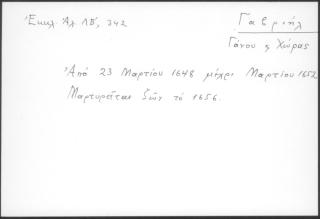 Ἐκκλ. Ἀλ. ΛΒ', 342
Γαβριήλ
Γάνου κ Χώρας
Ἀπό 23 Μαρτίου 1648 μέχρι Μαρτίου 1652
Μαρτυρεῖται ζῶν τό 1656.